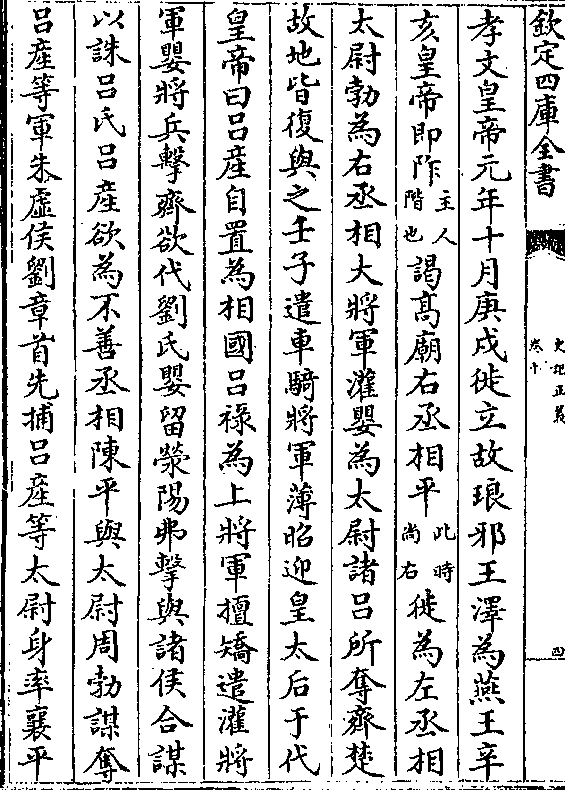 欽定四庫全書
史記正義
卷十
四
孝文皇帝元年十月庚戌徙立故琅邪王澤為燕王辛
亥皇帝即阼主人階也謁髙廟右丞相平此時尚右徙為左丞相
太尉勃為右丞相大將軍灌嬰為太尉諸呂所奪齊楚
故地皆復與之壬子遣車騎將軍薄昭迎皇太后于代
皇帝曰呂産自置為相國呂祿為上將軍擅矯遣灌將
軍嬰將兵擊齊欲代劉氏嬰留滎陽弗擊與諸侯合謀
以誅呂氏呂産欲為不善丞相陳平與太尉周勃謀奪
呂産等軍朱虛侯劉章首先捕呂産等太尉身率襄平